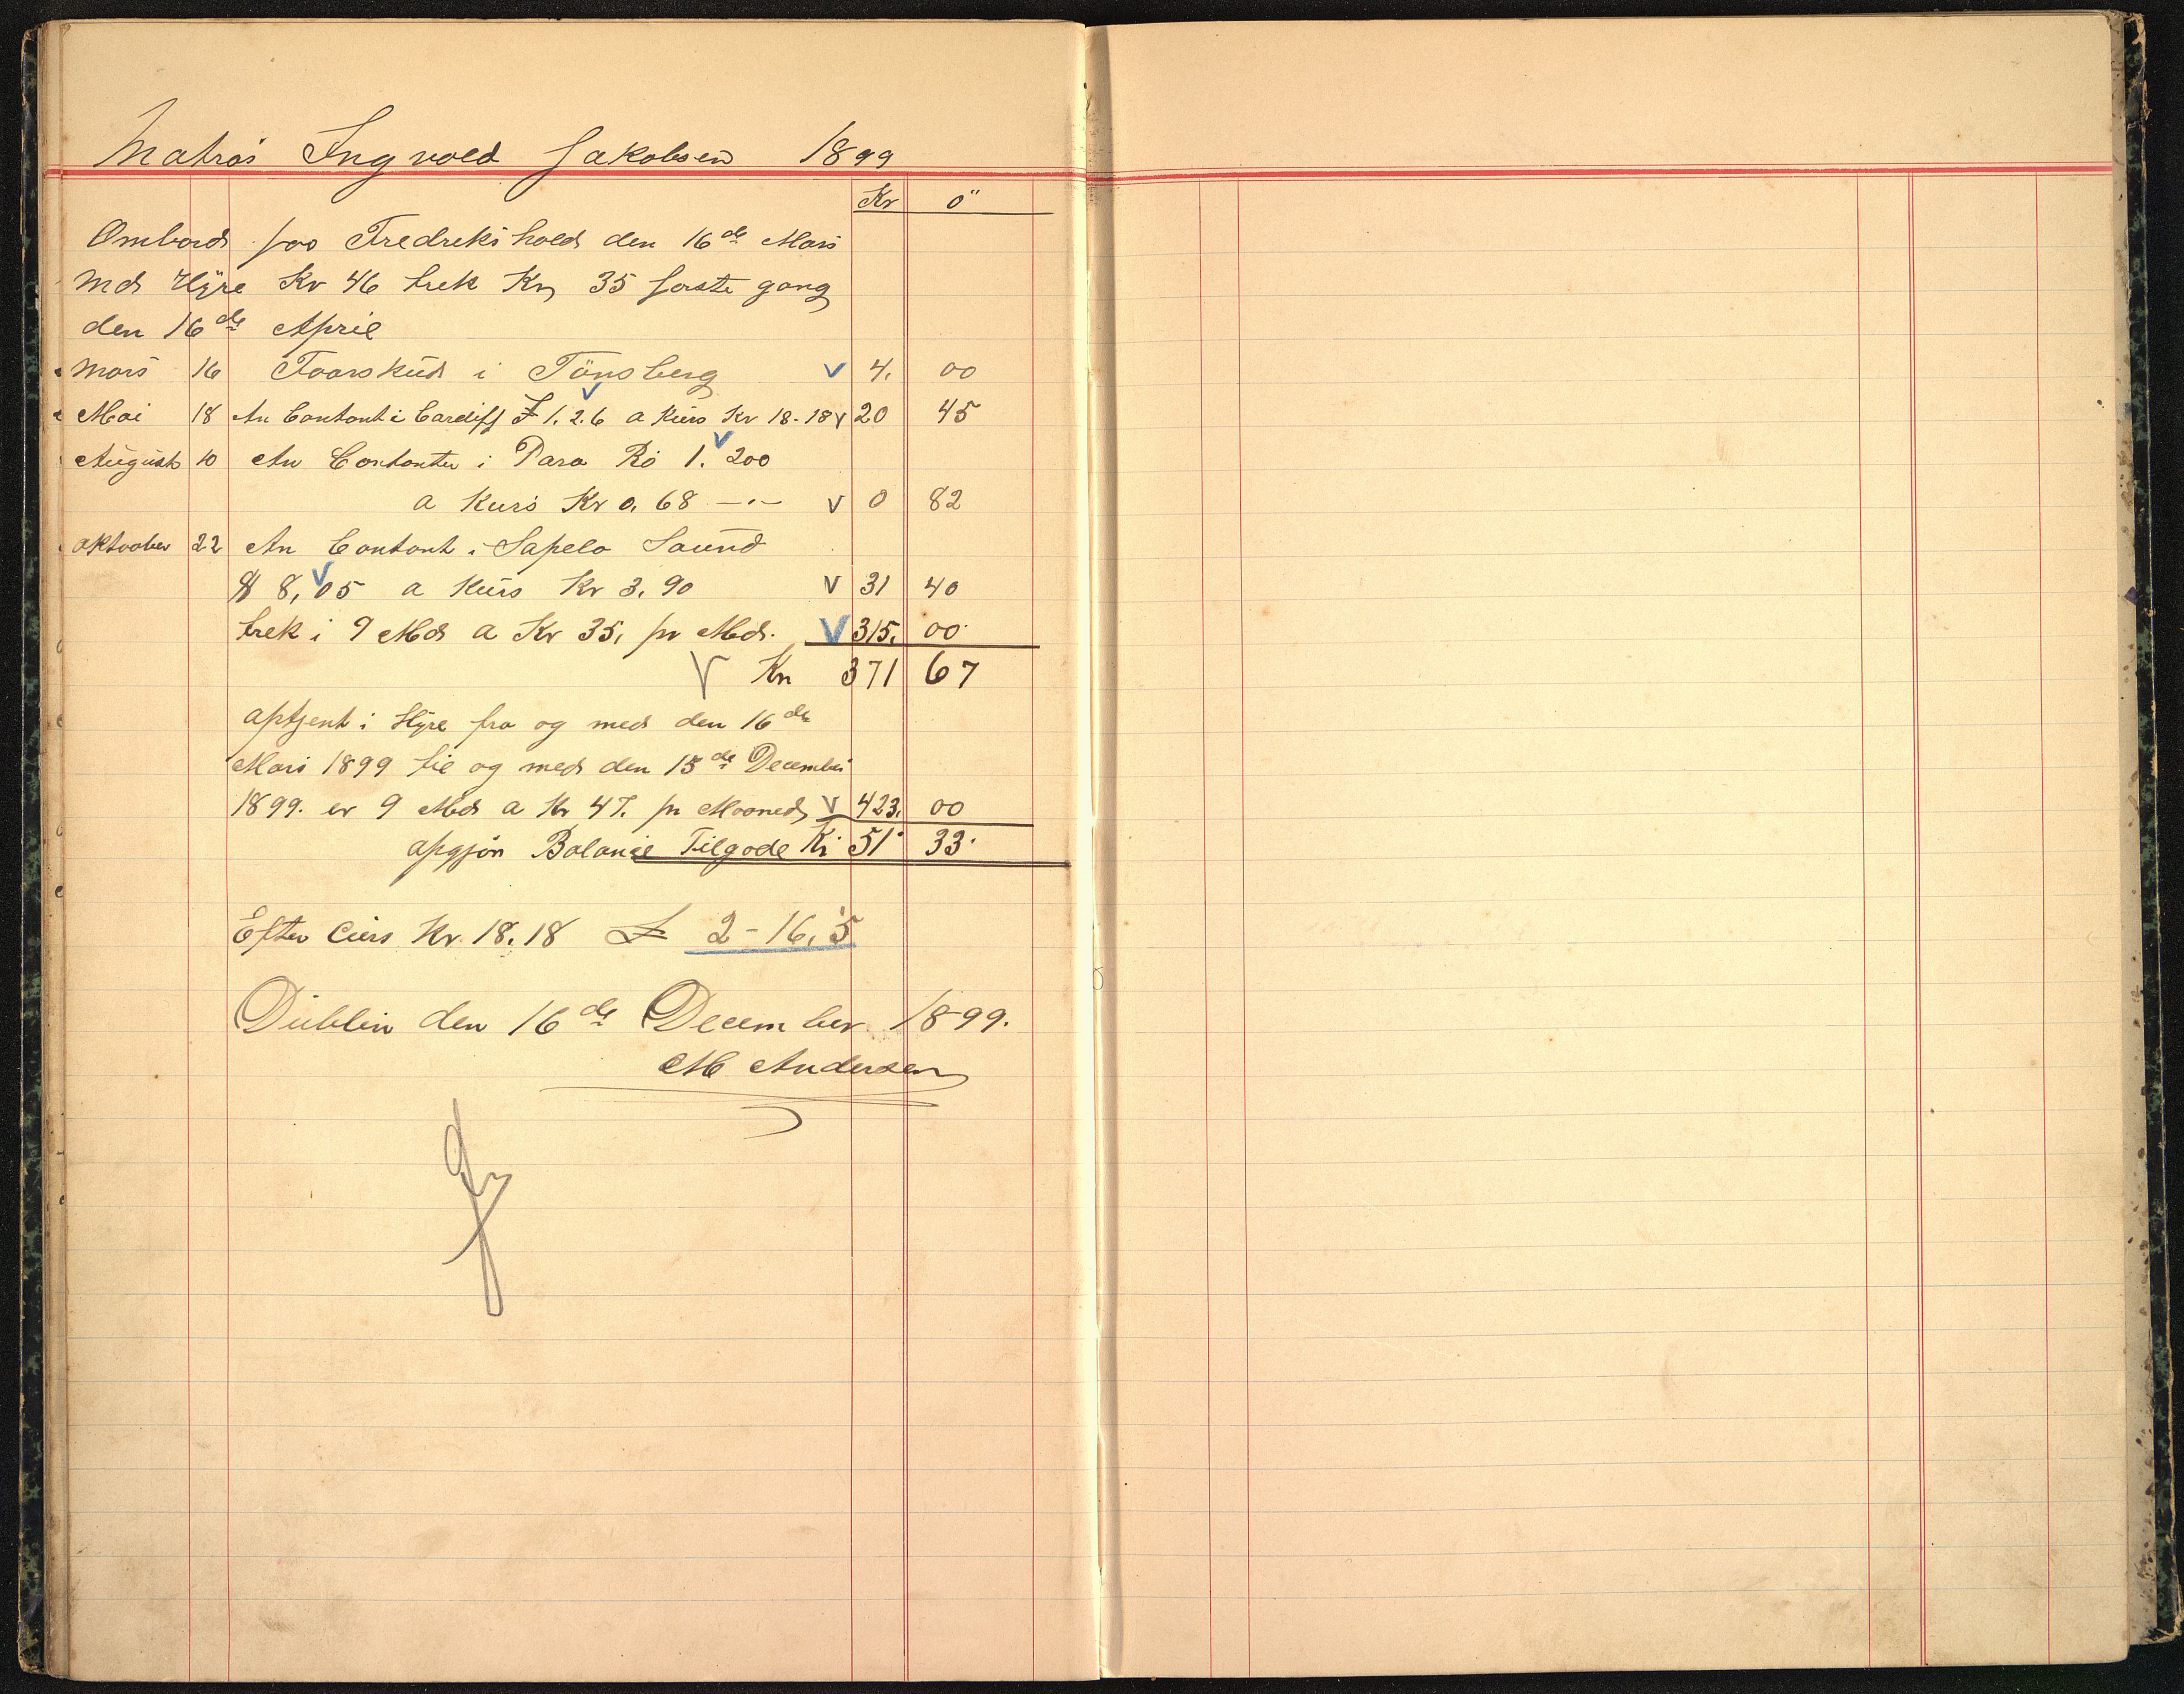 Matros Ingvold Jakobsen 1899
Kr ö
Ombord paa Fredrekshold den 16de Mars
Md Hÿre Kr 46 trek Kr 35 forste gang
den 16de April
Mars 16 Foorskud i Tönsberg 4. 00
Mai 18 An Contant i Cardiff £ 1.2.6 a Kurs Kr 18-18 20 45
August 10 An Contanter i Para Rs 1.200
a Kurs Kr 0,68 -"- 0 82
Oktoober 22 An Contant i Sapelo Sound
$ 8,05 a Kurs Kr 3,90 31 40
trek i 9 Md a Kr 35, pr Md. 315. 00
Kr 371 67
optjent i Hyre fra og med den 16de
Mars 1899 til og med den 15de December
1899. er 9 Md a Kr 47. pr Mooned 423. 00
opgjör Balance Tilgode Kr 51 33
Efter Curs Kr. 18.18 £ 2-16,5
Dublin den 16de December 1899.
M Andersen